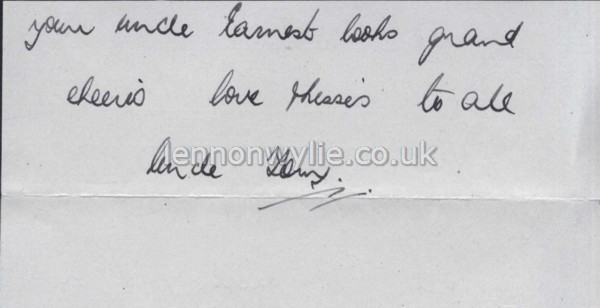 your uncle Earnest looks grand
cheerio love & kisses to all
lennonwylie.co.uk
Uncle Tom.